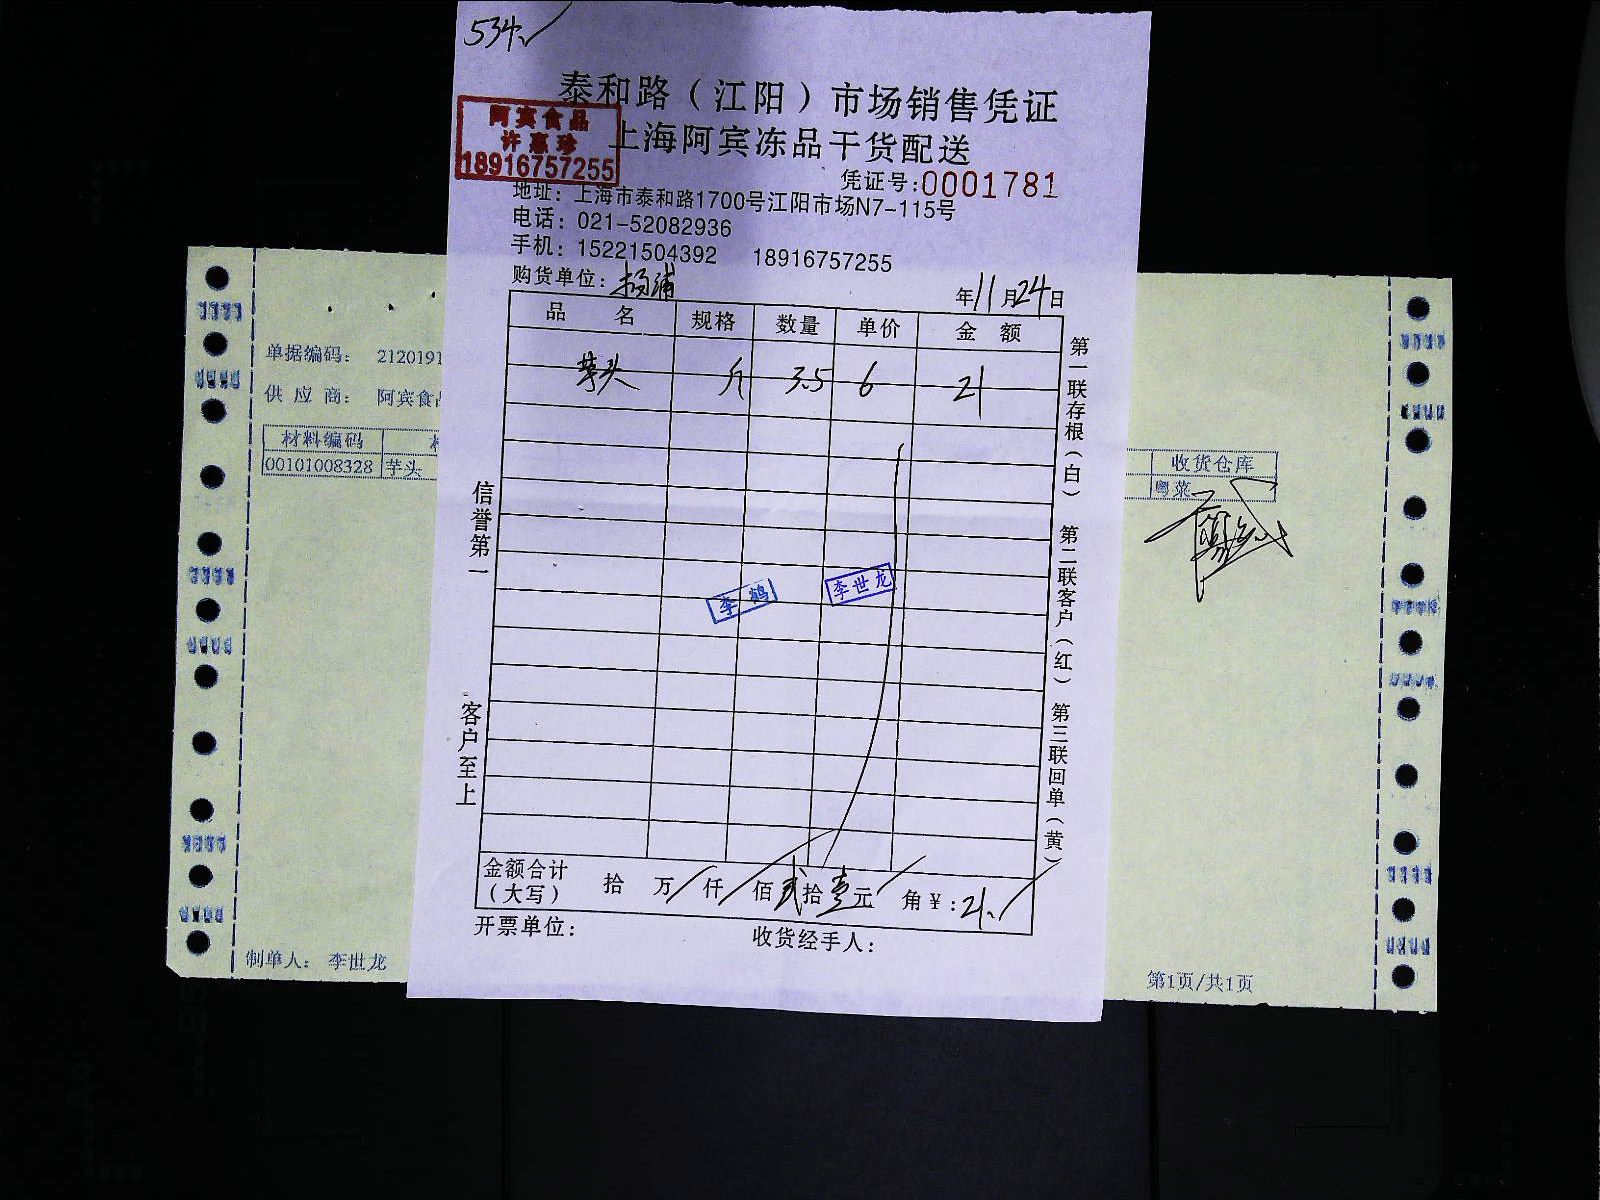 534.
泰和路（江阳）市场销售凭证
上海阿宾冻品干货配送
阿宾食品
许惠珍
18916757255
凭证号:0001781
地址：上海市泰和路1700号江阳市场N7-115号
电话：021-52082936
手机：15221504392 18916757255
购货单位：杨浦 年11月24日
品名 规格 数量 单价 金额
芋头 斤 3.5 6 21
李鹤
李世龙
金额合计（大写） 拾 万 仟 佰 贰拾壹元 角 ¥:21.
开票单位： 收货经手人：
信誉第一
客户至上
第一联存根（白） 第二联客户（红） 第三联回单（黄）
单据编码： 2120191
供应商： 阿宾食品
材料编码
00101008328 芋头
收货仓库
粤菜
制单人： 李世龙
第1页/共1页